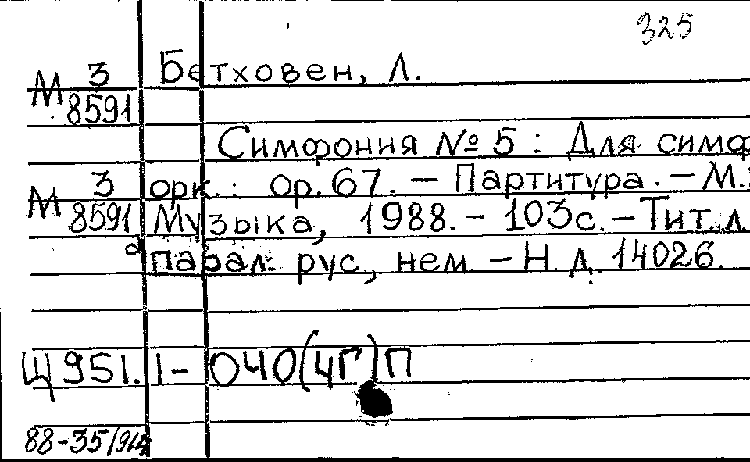 325
Бетховен, Л.
М 3
8591
Симфония № 5 : Для симф
М 3 орк. : ор. 67. — Партитура. — М.:
8591 Музыка, 1988. — 103с. — Тит. л.
а парал. рус, нем. — Н. д. 14026.
Щ 951.1-040(4Г)П
88-35/